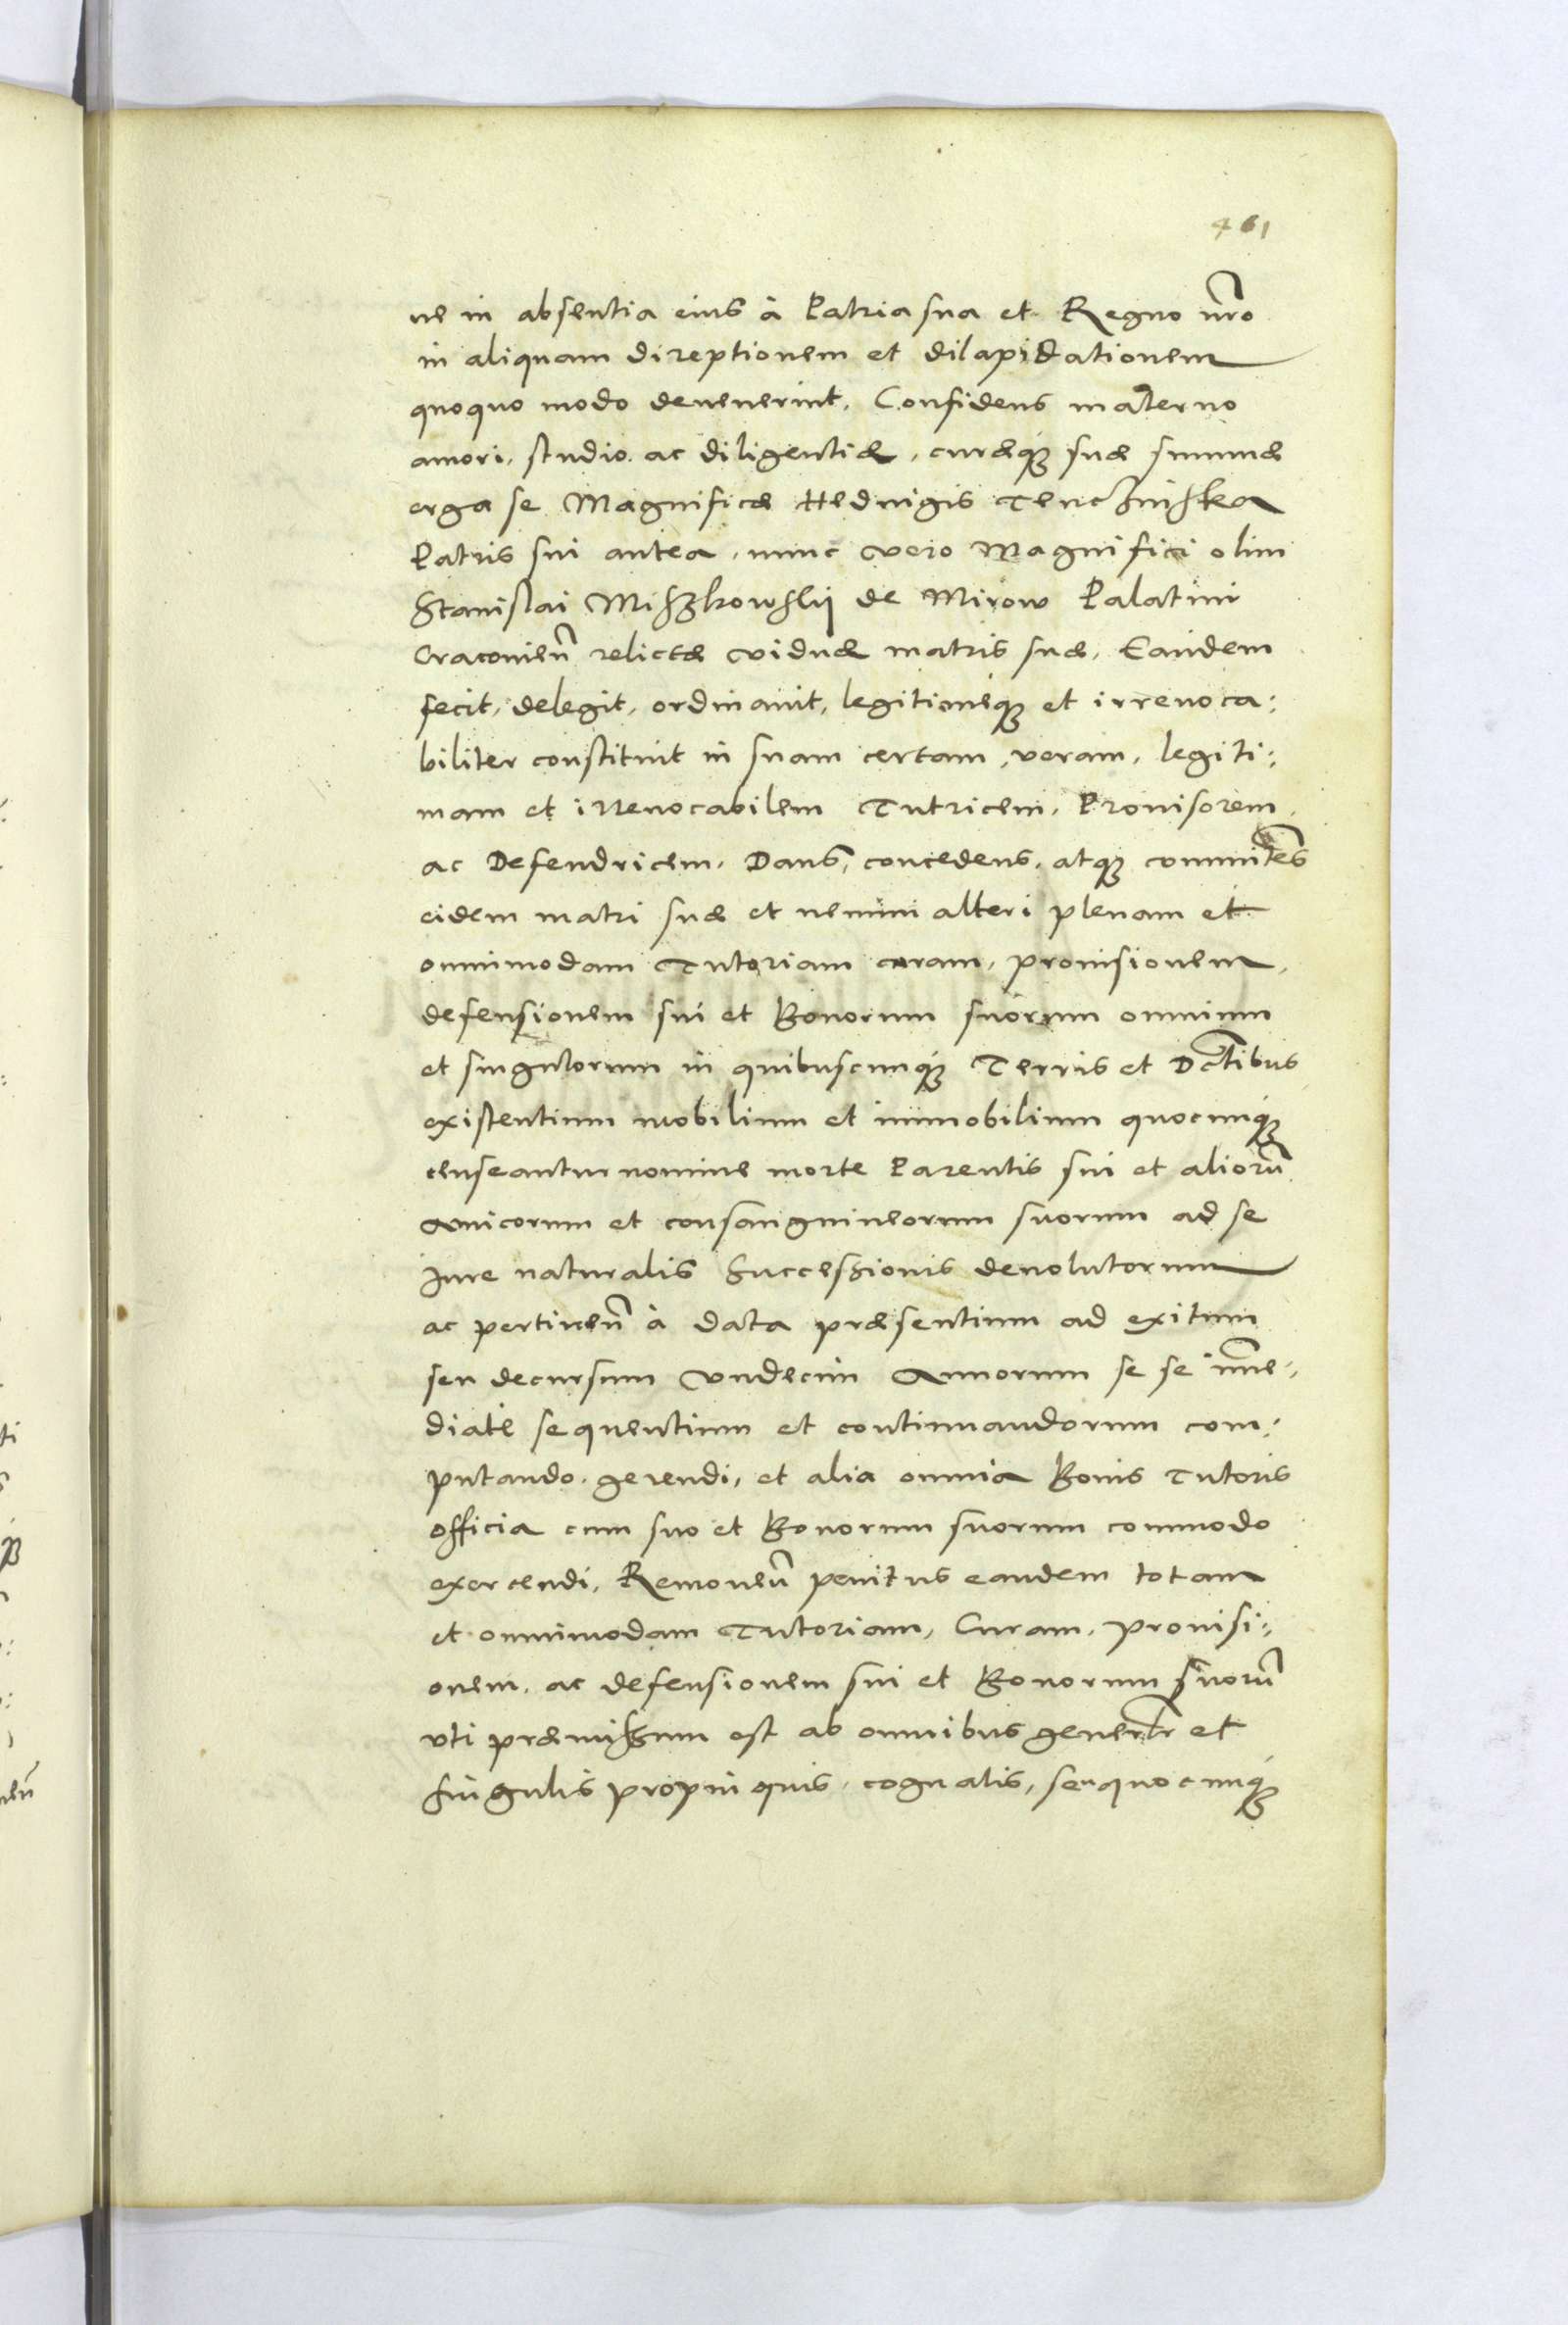 461
ne in absentia eius à Patria sua et Regno nr̃o
in aliquam direptionem et dilapidationem
quoquo modo devenerint. Confidens materno
amori, studio ac diligentiæ, curæq; suæ summæ
erga se Magnificæ Hedvigis Tenczinska
Patris sui antea, nunc vero Magnifici olim
Stanislai Mišzkowskij de Mirow Palatini
Cracovien̄ relictæ viduæ matris suæ, Eandem
fecit, delegit, ordinavit, legitimeq; et irrevoca:
biliter constituit in suam certam, veram, legiti:
mam et irrevocabilem Tutricem, Provisorem
ac Defendricem. Dans, concedens, atq; committēs
eidem matri suæ et nemini alteri plenam et
omnimodam Tutoriam curam, provisionem,
defensionem sui et Bonorum suorum omnium
et singulorum in quibuscunq; Terris et Dc̃tibus
existentium mobilium et immobilium quocunq;
censeantur nomine morte Parentis sui et aliorū
Amicorum et consanguineorum suorum ad se
Jure naturalis Successionis devolutorum
ac pertinen̄ à data præsentium ad exitum
seu decursum Undecim Annorum se se im̄e,
diatè sequentium et continuandorum com,
putando, gerendi, et alia omnia Bonis Tutoris
officia cum suo et Bonorum suorum commodo
exercendi, Removen̄ penitus eandem totam
et omnimodam Tutoriam, Curam, provisi:
onem, ac defensionem sui et Bonorum suorū
uti præmissum est ab omnibus generl̃r et
singulis propinquis, cognatis, seu quocunq;